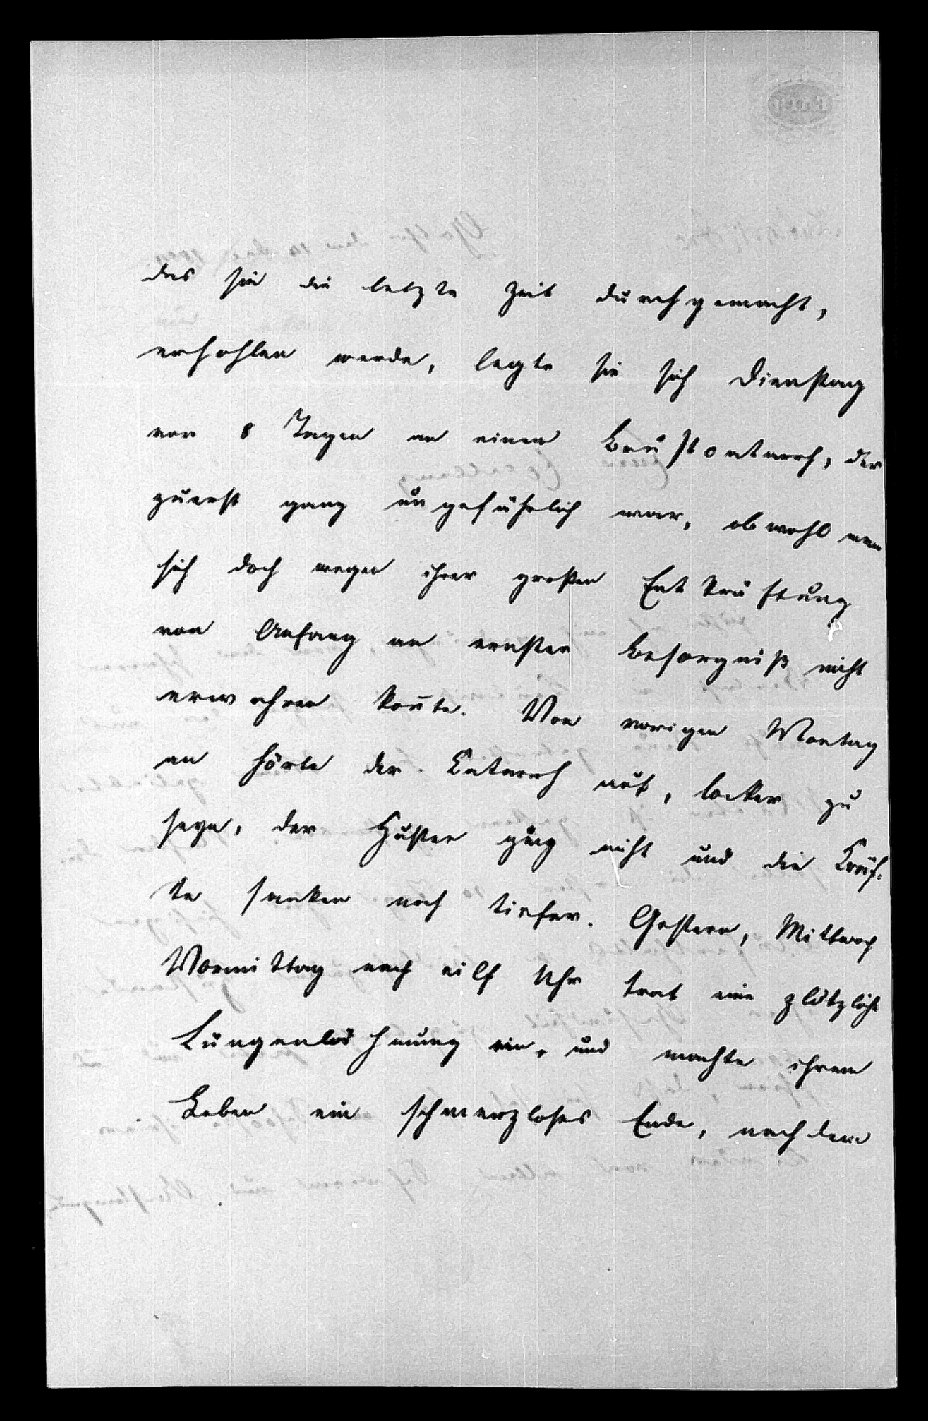 das sie die letzte Zeit durchgemacht,
erhohlen werde, legte sie sich Dienstag
vor 8 Tagen an einem Brustkatarrh, der
zuerst ganz ungefährlich war, obwohl man
sich doch wegen ihrer großen Entkräftung
von Anfang an ernster Besorgniß nicht
erwehren konte. Von vorigen Montag
an hörte der Katarrh auf, locker zu
seyn, der Husten ging nicht und die Kräf-
te sanken noch tiefer. Gestern, Mittwoch
Vormittag nach eilf Uhr trat eine plötzliche
Lungenlähmung ein, und machte ihrem
Leben ein schmerzloses Ende, nachdem